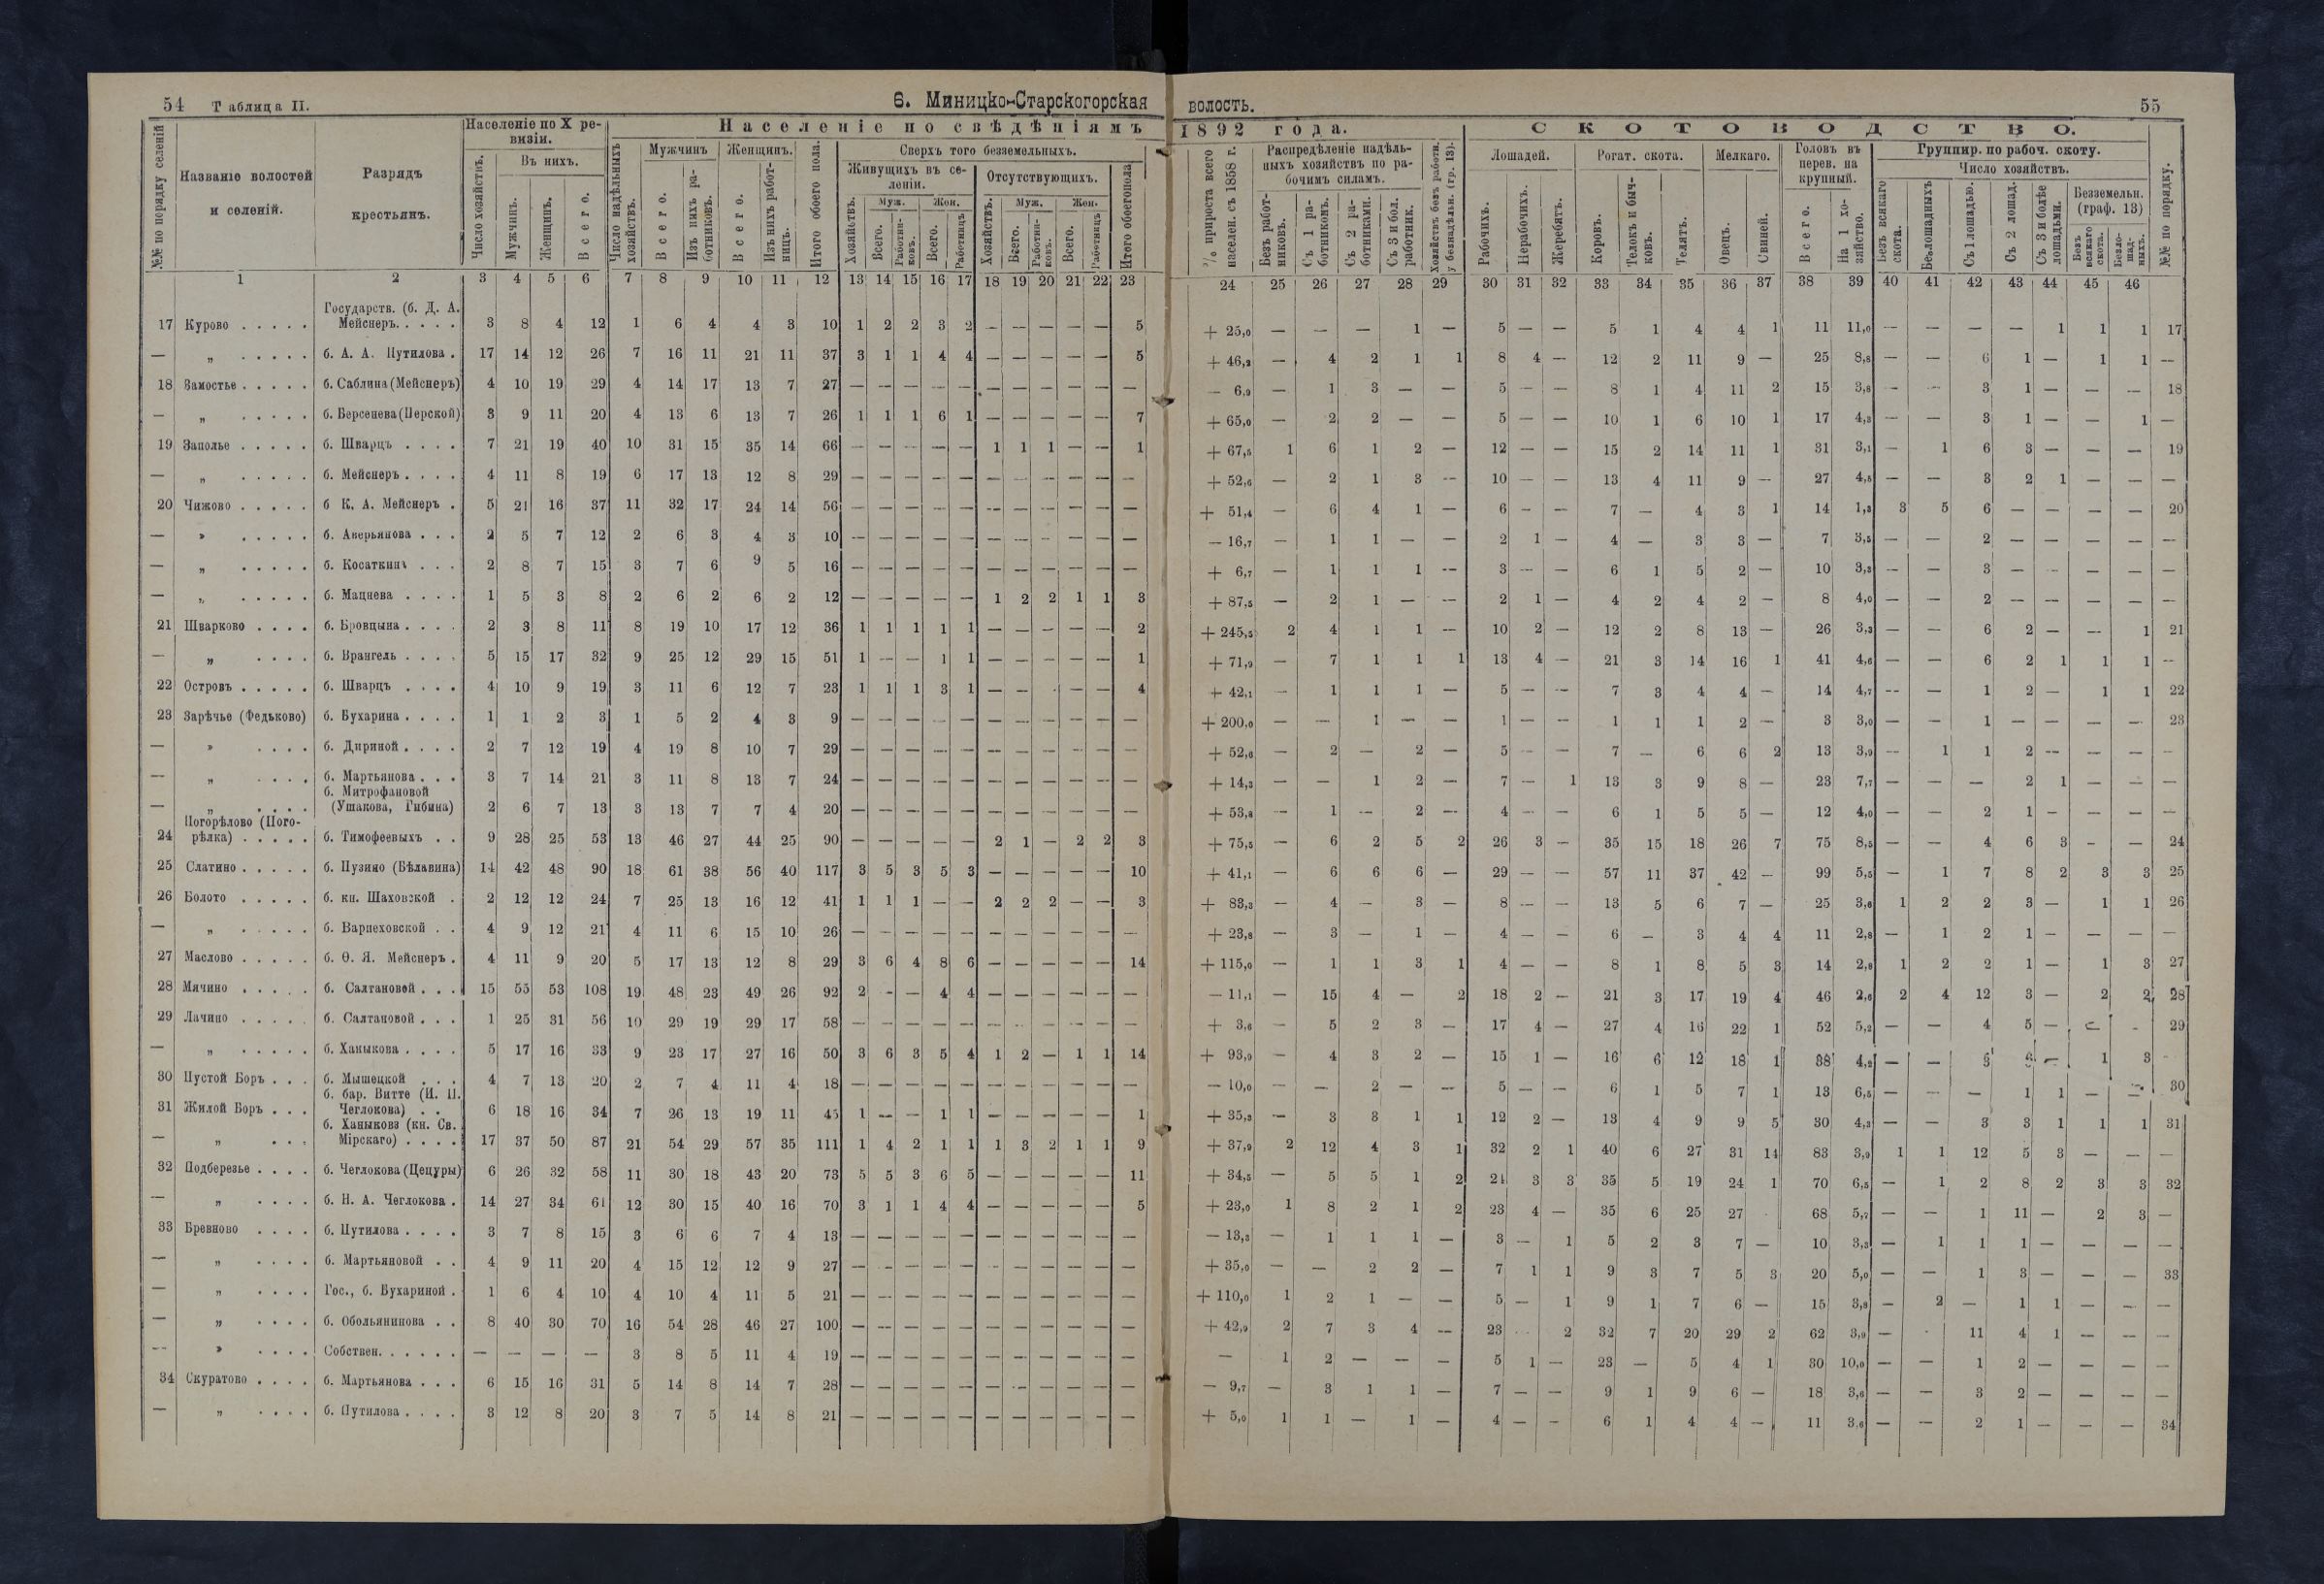 54 Таблица II.
6. Миницко-Старскогорская
№№ по порядку селеній
Названіе волостей и селеній.
Разрядъ крестьянъ.
Населеніе по X ревизіи.
Число хозяйствъ.
Въ нихъ.
Мужчинъ.
Женщинъ.
Всего.
Населеніе по свѣдѣніямъ
Число надѣльныхъ хозяйствъ.
Мужчинъ
Всего.
Изъ нихъ работниковъ.
Женщинъ.
Всего.
Изъ нихъ работницъ.
Итого обоего пола.
Сверхъ того безземельныхъ.
Живущихъ въ селеніи.
Хозяйствъ.
Муж.
Всего.
Работниковъ.
Жен.
Всего.
Работницъ
Отсутствующихъ.
Хозяйствъ.
Муж.
Всего.
Работниковъ.
Жен.
Всего.
Работницъ
Итого обоего пола
1 2 3 4 5 6 7 8 9 10 11 12 13 14 15 16 17 18 19 20 21 22 23
Государств. (б. Д. А.
17 Курово . . . . . Мейснеръ. . . . . 3 8 4 12 1 6 4 4 3 10 1 2 2 3 2 — — — — — 5
— „ . . . . . б. А. А. Путилова . 17 14 12 26 7 16 11 21 11 37 3 1 1 4 4 — — — — — 5
18 Замостье . . . . . б. Саблина (Мейснеръ) 4 10 19 29 4 14 17 13 7 27 — — — — — — — — — — —
— „ . . . . . б. Берсенева (Перской) 3 9 11 20 4 13 6 13 7 26 1 1 1 6 1 — — — — — 7
19 Заполье . . . . . б. Шварцъ . . . . 7 21 19 40 10 31 15 35 14 66 — — — — — 1 1 1 — — 1
— „ . . . . . б. Мейснеръ . . . . 4 11 8 19 6 17 13 12 8 29 — — — — — — — — — — —
20 Чижово . . . . . б К. А. Мейснеръ . 5 21 16 37 11 32 17 24 14 56 — — — — — — — — — — —
— „ . . . . . б. Аверьянова . . . 2 5 7 12 2 6 3 4 3 10 — — — — — — — — — — —
— „ . . . . . б. Косаткинъ . . . 2 8 7 15 3 7 6 9 5 16 — — — — — — — — — — —
— „ . . . . . б. Мацнева . . . . 1 5 3 8 2 6 2 6 2 12 — — — — — 1 2 2 1 1 3
21 Шварково . . . . б. Бровцына . . . . 2 3 8 11 8 19 10 17 12 36 1 1 1 1 1 — — — — — 2
— „ . . . . б. Врангель . . . . 5 15 17 32 9 25 12 29 15 51 1 — — 1 1 — — — — — 1
22 Островъ . . . . . б. Шварцъ . . . . 4 10 9 19 3 11 6 12 7 23 1 1 1 3 1 — — — — — 4
23 Зарѣчье (Федьково) б. Бухарина . . . . 1 1 2 3 1 5 2 4 3 9 — — — — — — — — — — —
— „ . . . . б. Дириной . . . . 2 7 12 19 4 19 8 10 7 29 — — — — — — — — — — —
— „ . . . . б. Мартьянова . . . 3 7 14 21 3 11 8 13 7 24 — — — — — — — — — — —
б. Митрофановой
— „ . . . . (Ушакова, Гибина) 2 6 7 13 3 13 7 7 4 20 — — — — — — — — — — —
Погорѣлово (Пого-
24 рѣлка) . . . . . б. Тимофеевыхъ . . 9 28 25 53 13 46 27 44 25 90 — — — — — 2 1 — 2 2 3
25 Слатино . . . . . б. Пузино (Бѣлавина) 14 42 48 90 18 61 38 56 40 117 3 5 3 5 3 — — — — — 10
26 Болото . . . . . б. кн. Шаховской . 2 12 12 24 7 25 13 16 12 41 1 1 1 — — 2 2 2 — — 3
— „ . . . . . б. Варпеховской . . 4 9 12 21 4 11 6 15 10 26 — — — — — — — — — — —
27 Маслово . . . . . б. Ѳ. Я. Мейснеръ . 4 11 9 20 5 17 13 12 8 29 3 6 4 8 6 — — — — — 14
28 Мячино . . . . . б. Салтановой . . . 15 55 53 108 19 48 23 49 26 92 2 - — 4 4 — — — — — —
29 Лачино . . . . . б. Салтановой . . . 1 25 31 56 10 29 19 29 17 58 — — — — — — — — — — —
— „ . . . . . б. Ханыкова . . . . 5 17 16 33 9 23 17 27 16 50 3 6 3 5 4 1 2 — 1 1 14
30 Пустой Боръ . . . б. Мышецкой . . . 4 7 13 20 2 7 4 11 4 18 — — — — — — — — — — —
б. бар. Витте (И. П.
31 Жилой Боръ . . . Чеглокова) . . 6 18 16 34 7 26 13 19 11 45 1 — — 1 1 — — — — — 1
б. Ханыкова (кн. Св.
— „ . . . Мірскаго) . . . . 17 37 50 87 21 54 29 57 35 111 1 4 2 1 1 1 3 2 1 1 9
32 Подберезье . . . . б. Чеглокова (Цецуры) 6 26 32 58 11 30 18 43 20 73 5 5 3 6 5 — — — — — 11
— „ . . . . б. Н. А. Чеглокова . 14 27 34 61 12 30 15 40 16 70 3 1 1 4 4 — — — — — 5
33 Бревново . . . . б. Путилова . . . . 3 7 8 15 3 6 6 7 4 13 — — — — — — — — — — —
— „ . . . . б. Мартьяновой . . 4 9 11 20 4 15 12 12 9 27 — — — — — — — — — — —
— „ . . . . Гос., б. Бухариной . 1 6 4 10 4 10 4 11 5 21 — — — — — — — — — — —
— „ . . . . б. Обольянинова . . 8 40 30 70 16 54 28 46 27 100 — — — — — — — — — — —
— „ . . . . Собствен. . . . . . — — — — 3 8 5 11 4 19 — — — — — — — — — — —
34 Скуратово . . . . б. Мартьянова . . . 6 15 16 31 5 14 8 14 7 28 — — — — — — — — — — —
— „ . . . . б. Путилова . . . . 3 12 8 20 3 7 5 14 8 21 — — — — — — — — — — —
волость. 55
1892 года.
% прироста всего населен. съ 1858 г.
Распредѣленіе надѣльныхъ хозяйствъ по рабочимъ силамъ.
Безъ работниковъ.
Съ 1 работникомъ.
Съ 2 работниками.
Съ 3 и бол. работник.
Хозяйствъ безъ работн. у безнадѣльн. (гр. 13).
СКОТОВОДСТВО.
Лошадей.
Рабочихъ.
Нерабочихъ.
Жеребятъ.
Рогат. скота.
Коровъ.
Телокъ и бычковъ.
Телятъ.
Мелкаго.
Овецъ.
Свиней.
Головъ въ перев. на крупный.
Всего.
На 1 хозяйство.
Группир. по рабоч. скоту.
Число хозяйствъ.
Безъ всякаго скота.
Безлошадныхъ
Съ 1 лошадью.
Съ 2 лошад.
Съ 3 и болѣе лошадьми.
Безземельн. (граф. 13)
Безъ всякаго скота.
Безлошадныхъ.
№№ по порядку.
24 25 26 27 28 29 30 31 32 33 34 35 36 37 38 39 40 41 42 43 44 45 46
+ 25,0 — — — 1 — 5 — — 5 1 4 4 1 11 11,0 — — — — 1 1 1 17
+ 46,2 — 4 2 1 1 8 4 — 12 2 11 9 — 25 8,8 — — 6 1 — 1 1 —
— 6,9 — 1 3 — — 5 — — 8 1 4 11 2 15 3,8 — — 3 1 — — — 18
+ 65,0 — 2 2 — — 5 — — 10 1 6 10 1 17 4,3 — — 3 1 — — 1 —
+ 67,5 1 6 1 2 — 12 — — 15 2 14 11 1 31 3,1 — 1 6 3 — — — 19
+ 52,6 — 2 1 3 — 10 — — 13 4 11 9 — 27 4,5 — — 3 2 1 — — —
+ 51,4 — 6 4 1 — 6 — — 7 — 4 3 1 14 1,3 3 5 6 — — — — 20
— 16,7 — 1 1 — — 2 1 — 4 — 3 3 — 7 3,5 — — 2 — — — — —
+ 6,7 — 1 1 1 — 3 — — 6 1 5 2 — 10 3,3 — — 3 — — — — —
+ 87,5 — 2 1 — — 2 1 — 4 2 4 2 — 8 4,0 — — 2 — — — — —
+ 245,5 2 4 1 1 — 10 2 — 12 2 8 13 — 26 3,3 — — 6 2 — — 1 21
+ 71,9 — 7 1 1 1 13 4 — 21 3 14 16 1 41 4,6 — — 6 2 1 1 1 —
+ 42,1 — 1 1 1 — 5 — — 7 3 4 4 — 14 4,7 — — 1 2 — 1 1 22
+ 200,0 — — 1 — — 1 — — 1 1 1 2 — 3 3,0 — — 1 — — — — 23
+ 52,6 — 2 — 2 — 5 — — 7 — 6 6 2 13 3,9 — 1 1 2 — — — —
+ 14,3 — — 1 2 — 7 — 1 13 3 9 8 — 23 7,7 — — — 2 1 — — —
+ 53,8 — 1 — 2 — 4 — — 6 1 5 5 — 12 4,0 — — 2 1 — — — —
+ 75,5 — 6 2 5 2 26 3 — 35 15 18 26 7 75 8,5 — — 4 6 3 — — 24
+ 41,1 — 6 6 6 — 29 — — 57 11 37 42 — 99 5,5 — 1 7 8 2 3 3 25
+ 83,3 — 4 — 3 — 8 — — 13 5 6 7 — 25 3,6 1 2 2 3 — 1 1 26
+ 23,8 — 3 — 1 — 4 — — 6 — 3 4 4 11 2,8 — 1 2 1 — — — —
+ 115,0 — 1 1 3 1 4 — — 8 1 8 5 3 14 2,8 1 2 2 1 — 1 3 27
— 11,1 — 15 4 — 2 18 2 — 21 3 17 19 4 46 2,0 2 4 12 3 — 2 2 28
+ 3,6 — 5 2 3 — 17 4 — 27 4 16 22 1 52 5,2 — — 4 5 — 29
+ 93,9 — 4 3 2 — 15 1 — 16 6 12 18 1 38 4,2 — — 1 3
— 10,0 — — 2 — — 5 — — 6 1 5 7 1 13 6,5 — — — 1 1 — 30
+ 35,3 — 3 3 1 1 12 2 — 13 4 9 9 5 30 4,3 — — 3 3 1 1 1 31
+ 37,9 2 12 4 3 1 32 2 1 40 6 27 31 14 83 3,9 1 1 12 5 3 — — —
+ 34,5 — 5 5 1 2 21 3 3 35 5 19 24 1 70 6,5 — 1 2 8 2 3 3 32
+ 23,0 1 8 2 1 2 23 4 — 35 6 25 27 68 5,7 — — 1 11 — 2 3 —
— 13,3 — 1 1 1 — 3 — 1 5 2 3 7 — 10 3,3 — 1 1 1 — — — —
+ 35,0 — — 2 2 — 7 1 1 9 3 7 5 3 20 5,0 — — 1 3 — — — 33
+ 110,0 1 2 1 — — 5 — 1 9 1 7 6 — 15 3,8 — 2 — 1 1 — — —
+ 42,9 2 7 3 4 — 23 2 32 7 20 29 2 62 3,9 — 11 4 1 — — —
— 1 2 — — — 5 1 — 23 — 5 4 1 30 10,0 — — 1 2 — — — —
— 9,7 — 3 1 1 — 7 — — 9 1 9 6 — 18 3,6 — — 3 2 — — — —
+ 5,0 1 1 — 1 — 4 — — 6 1 4 4 — 11 3,6 — — 2 1 — — — 34